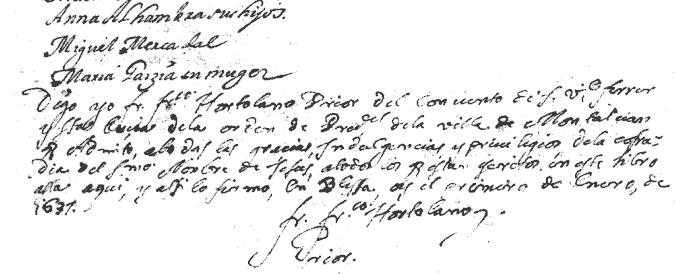 Anna Alhambra sus hijos.
Miguel Mercadal
Maria Garzia su muger
Digo yo fr. fr.co Hortolano Prior del Conuento de S. Vi.e ferrer
y sta Lucia dela orden de Pred.es dela villa de Montalban
q Admito, a todas las gracias, Indulgencias y priuilegios dela cofra-
dia del s.mo Nombre de Jesus, a todos los q estan escritos en este libro
asta aqui, y asi lo firmo, en Blessa, a el primero de Enero, de
1631.
fr. fr.co Hortolano
Prior.